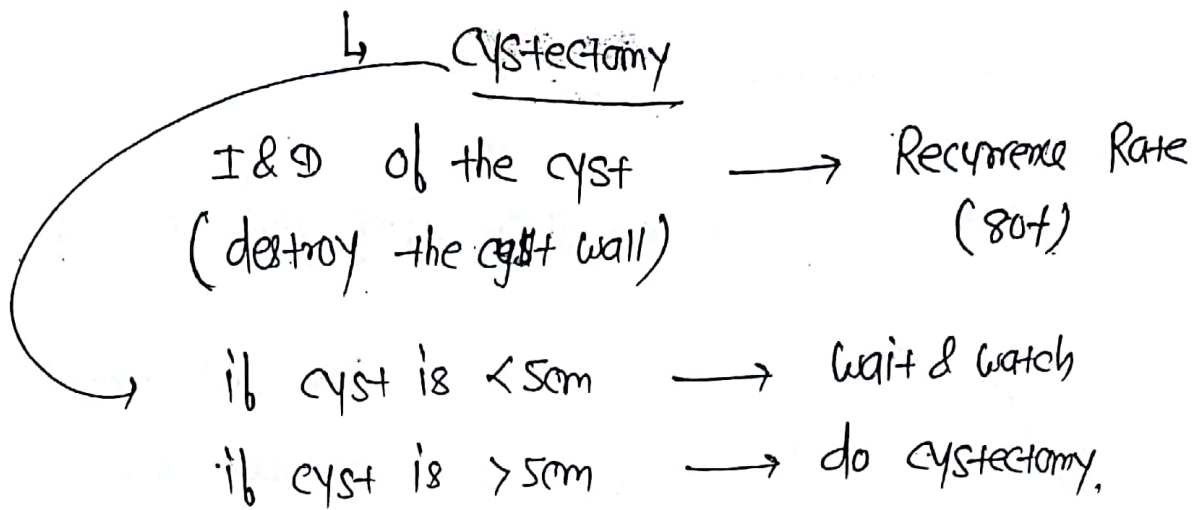 ↳ Cystectomy
I & D of the cyst → Recurrence Rate
(destroy the cyst wall) (80%)
if cyst is < 5cm → wait & watch
if cyst is > 5cm → do cystectomy.